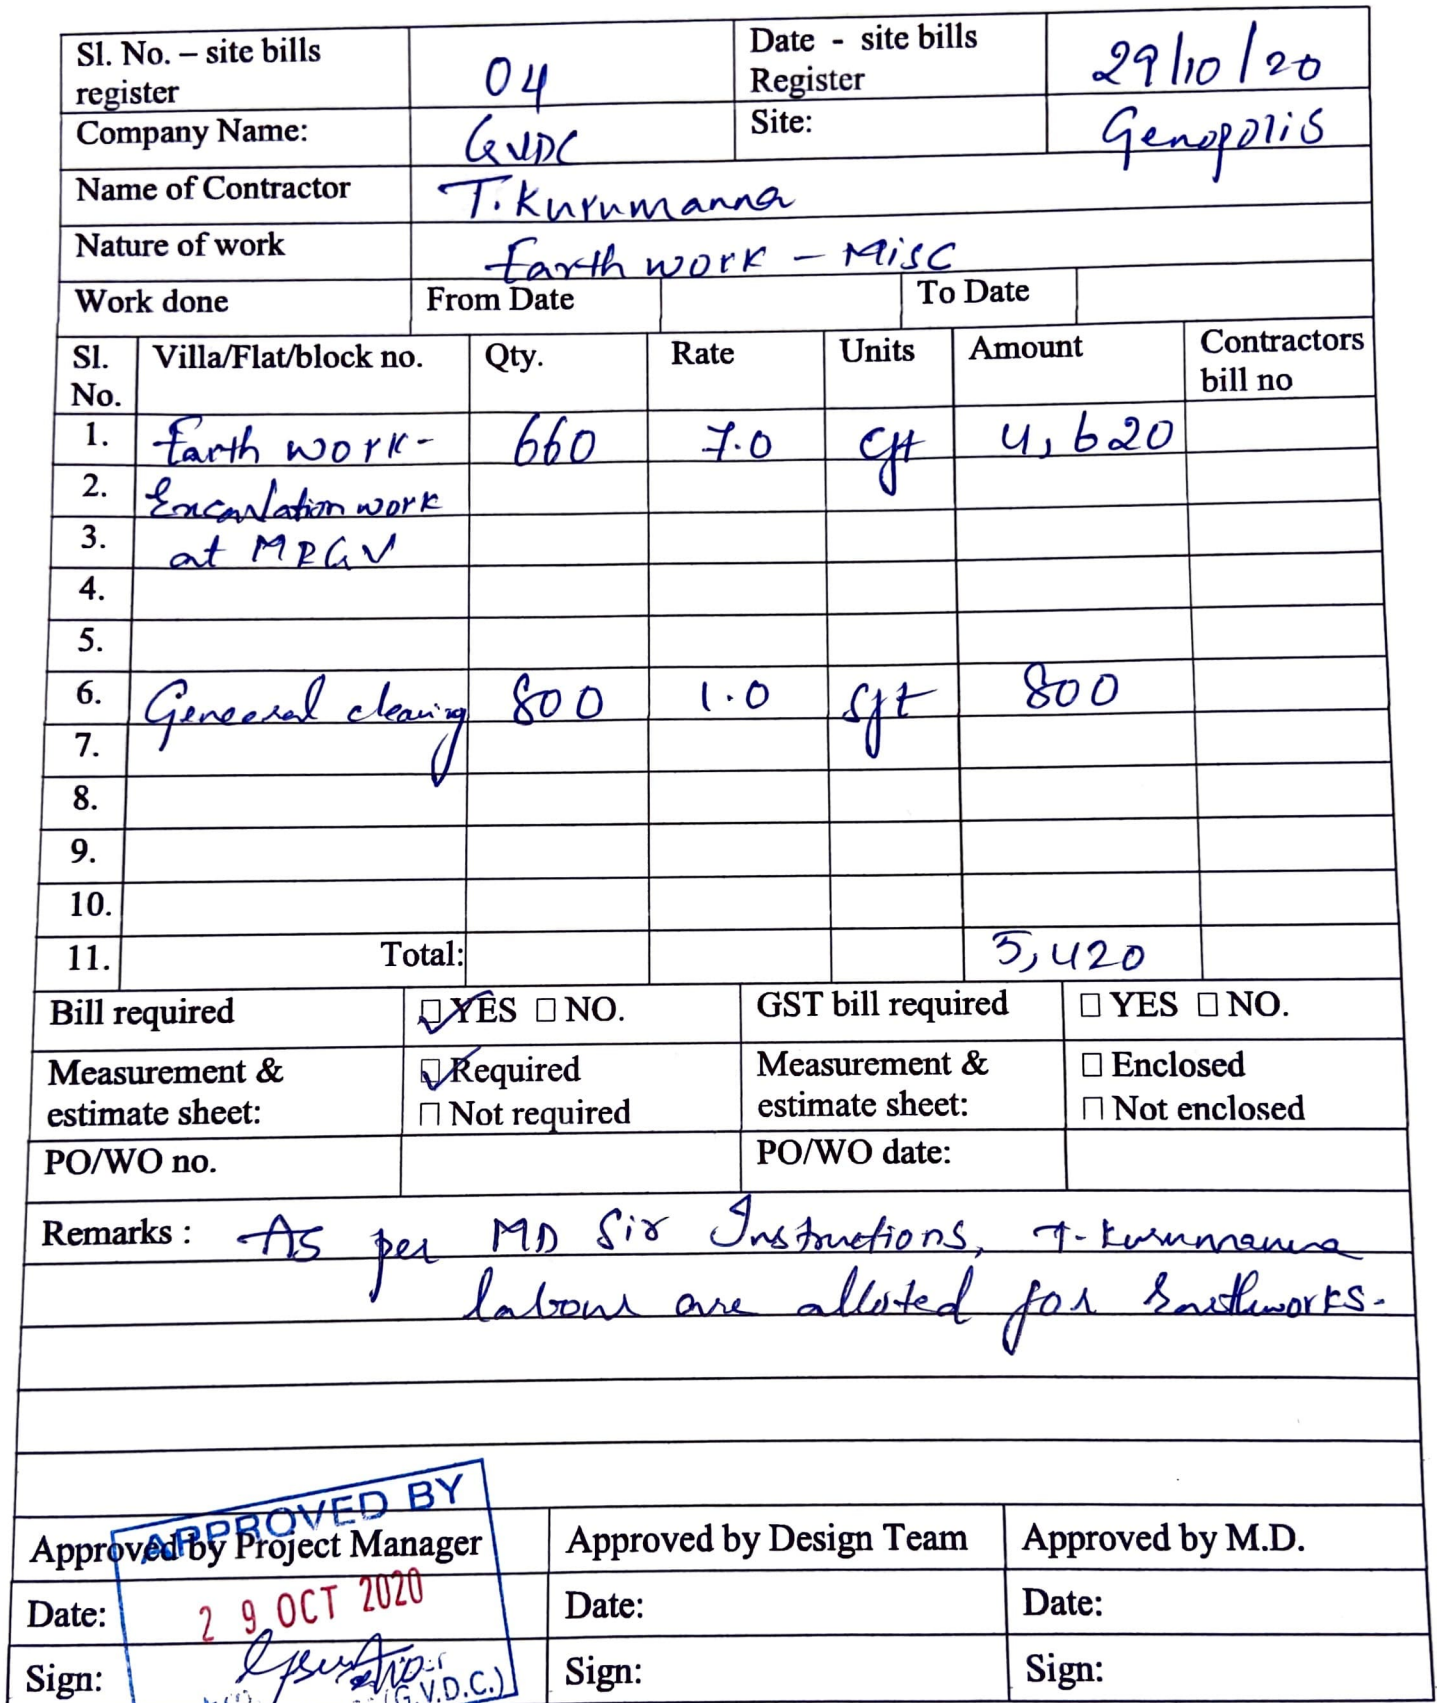 Sl. No. – site bills register 04 Date - site bills Register 29/10/20
Company Name: GVDC Site: Genopolis
Name of Contractor T. Kurumanna
Nature of work Earth work - Misc
Work done From Date To Date
Sl. No. Villa/Flat/block no. Qty. Rate Units Amount Contractors bill no
1. Earth work - 660 7.0 cft 4,620
2. Excavation work
3. at MRGV
4.
5.
6. General cleaning 800 1.0 sft 800
7.
8.
9.
10.
11. Total: 5,420
Bill required ☐ YES ☐ NO. GST bill required ☐ YES ☐ NO.
Measurement & estimate sheet: ☐ Required ☐ Not required Measurement & estimate sheet: ☐ Enclosed ☐ Not enclosed
PO/WO no. PO/WO date:
Remarks : As per MD Sir Instructions, T. Kurumanna
labour are alloted for Earthworks.
APPROVED BY
Approved by Project Manager Approved by Design Team Approved by M.D.
Date: 29 OCT 2020 Date: Date:
Sign: Sign: Sign:
(G.V.D.C.)